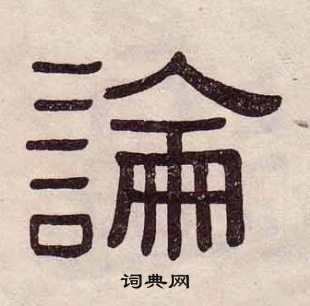 論
词典网